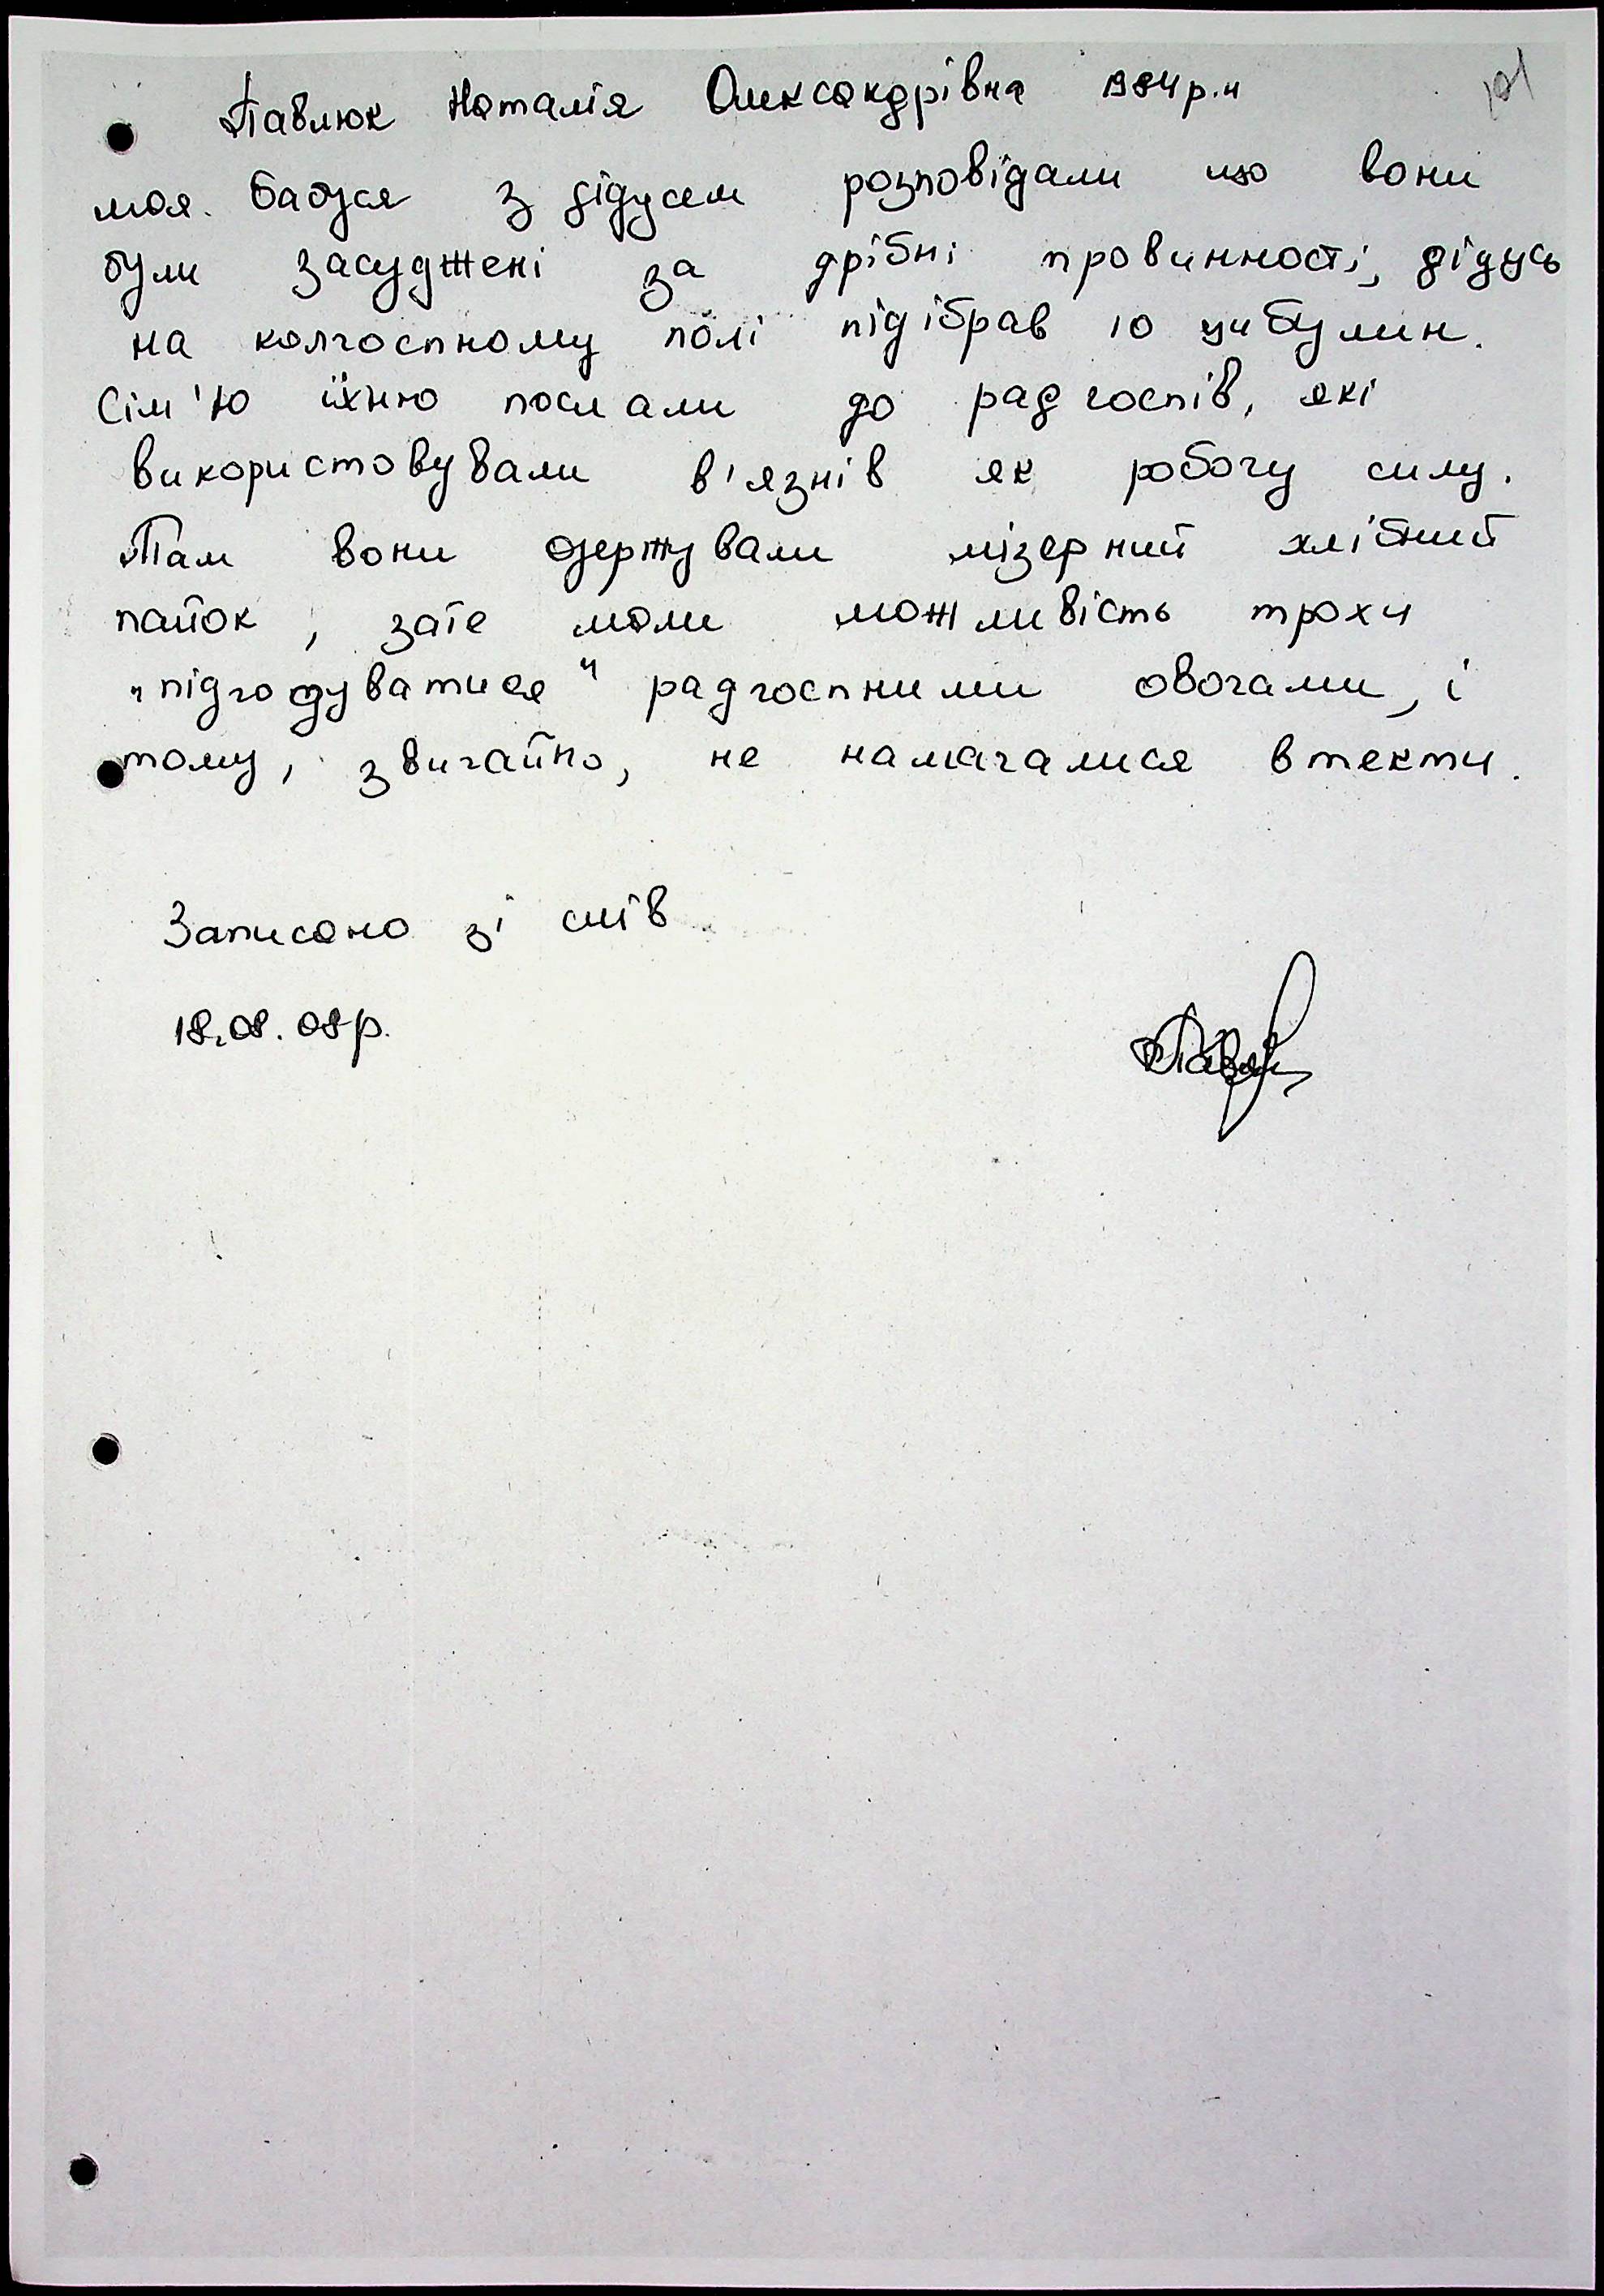 Павлюк Наталія Олександрівна 1984 р.н
моя бабуся з дідусем розповідали що вони
були засуджені за дрібні провинності, дідусь
на колгоспному полі підібрав 10 цибулин.
Сім'ю їхню послали до радгоспів, які
використовували в'язнів як робочу силу.
Там вони одержували мізерний хлібний
пайок, зате мали можливість трохи
"підгодуватися" радгоспними овочами, і
тому, звичайно, не намагалися втекти.
Записано зі слів
18.08.08р.